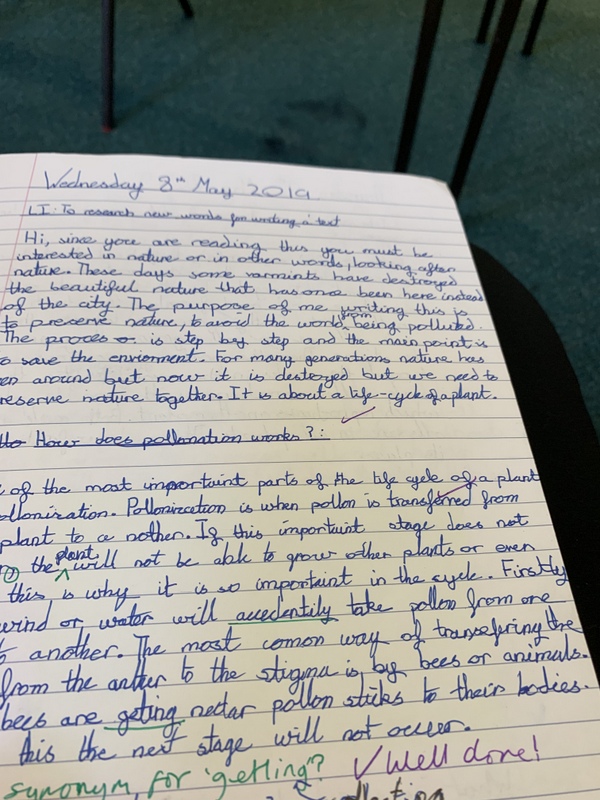 Wednesday 8th May 2019
LI: To research new words for writing a text
Hi, since youe are reading this you must be
interested in nature or in other words, looking after
nature. These days some varmints have destroyed
the beautiful nature that has once been here instead
of the city. The purpose of me writing this is
to preserve nature, to avoid the world from being polluted.
The proces is step by step and the main point is
o save the enviorment. For many generations nature has
en around but now it is destoyed but we need to
reserve nature together. It is about a life-cycle of a plant.
How does pollonation works?:
of the most importaint parts of the life cycle of a plant
ollonization. Pollonization is when pollon is transferred from
plant to a nother. If this importaint stage does not
the plant will not be able to grow other plants or even
this is why it is so importaint in the cycle. Firstly
wind or water will accedentily take pollon from one
to another. The most comon way of transfering the
from the anther to the stigma is by bees or animals.
bees are geting nectar pollon sticks to their bodies.
this the next stage will not occur.
synonym for 'getting'? ✓ Well done!
collecting